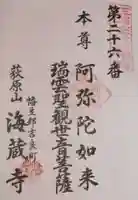 第二十六番
本尊 阿弥陀如来
瑞雲聖観世音菩薩
幡豆郡吉良町
荻原山 海蔵寺